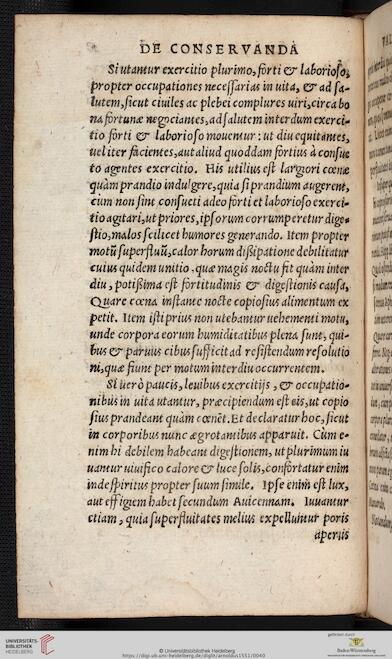 DE CONSERVANDA
Si utantur exercitio plurimo, forti & laborioso,
propter occupationes necessarias in uita, & ad sa-
lutem, sicut ciuiles ac plebei complures uiri, circa bo
na fortunæ negociantes, ad salutem interdum exerci-
tio forti & laborioso mouentur: ut diu equitantes,
uel iter facientes, aut aliud quoddam fortius à consue
to agentes exercitio. His utilius est largiori cœnæ
quàm prandio indulgere, quia si prandium augerent,
cùm non sint consueti adeo forti et laborioso exerci-
tio agitari, ut priores, ipsorum corrumperetur dige-
stio, malos scilicet humores generando. Item propter
motũ superfluũ, calor horum dißipatione debilitatur
cuius quidem unitio, quæ magis noctu fit quàm inter
diu, potißima est fortitudinis & digestionis causa,
Quare cœna instante nocte copiosius alimentum ex
petit. Item isti prius non utebantur uehementi motu,
unde corpora eorum humiditatibus plena sunt, qui-
bus & paruus cibus sufficit ad resistendum resolutio
ni, quæ fiunt per motum interdiu occurrentem.
Si uerò paucis, leuibus exercitijs, & occupatio-
nibus in uita utantur, præcipiendum est eis, ut copio
sius prandeant quàm cœnẽt. Et declaratur hoc, sicut
in corporibus nunc ægrotantibus apparuit. Cùm e-
nim hi debilem habeant digestionem, ut plurimum iu
uantur uiuifico calore & luce solis, confortatur enim
inde spiritus propter suum simile. Ipse enim est lux,
aut effigiem habet secundum Auicennam. Iuuantur
etiam, quia superfluitates melius expelluntur poris
apertis
UNIVERSITÄTS-
BIBLIOTHEK
HEIDELBERG
© Universitätsbibliothek Heidelberg
https://digi.ub.uni-heidelberg.de/diglit/arnoldus1551/0040
gefördert durch
Baden-Württemberg